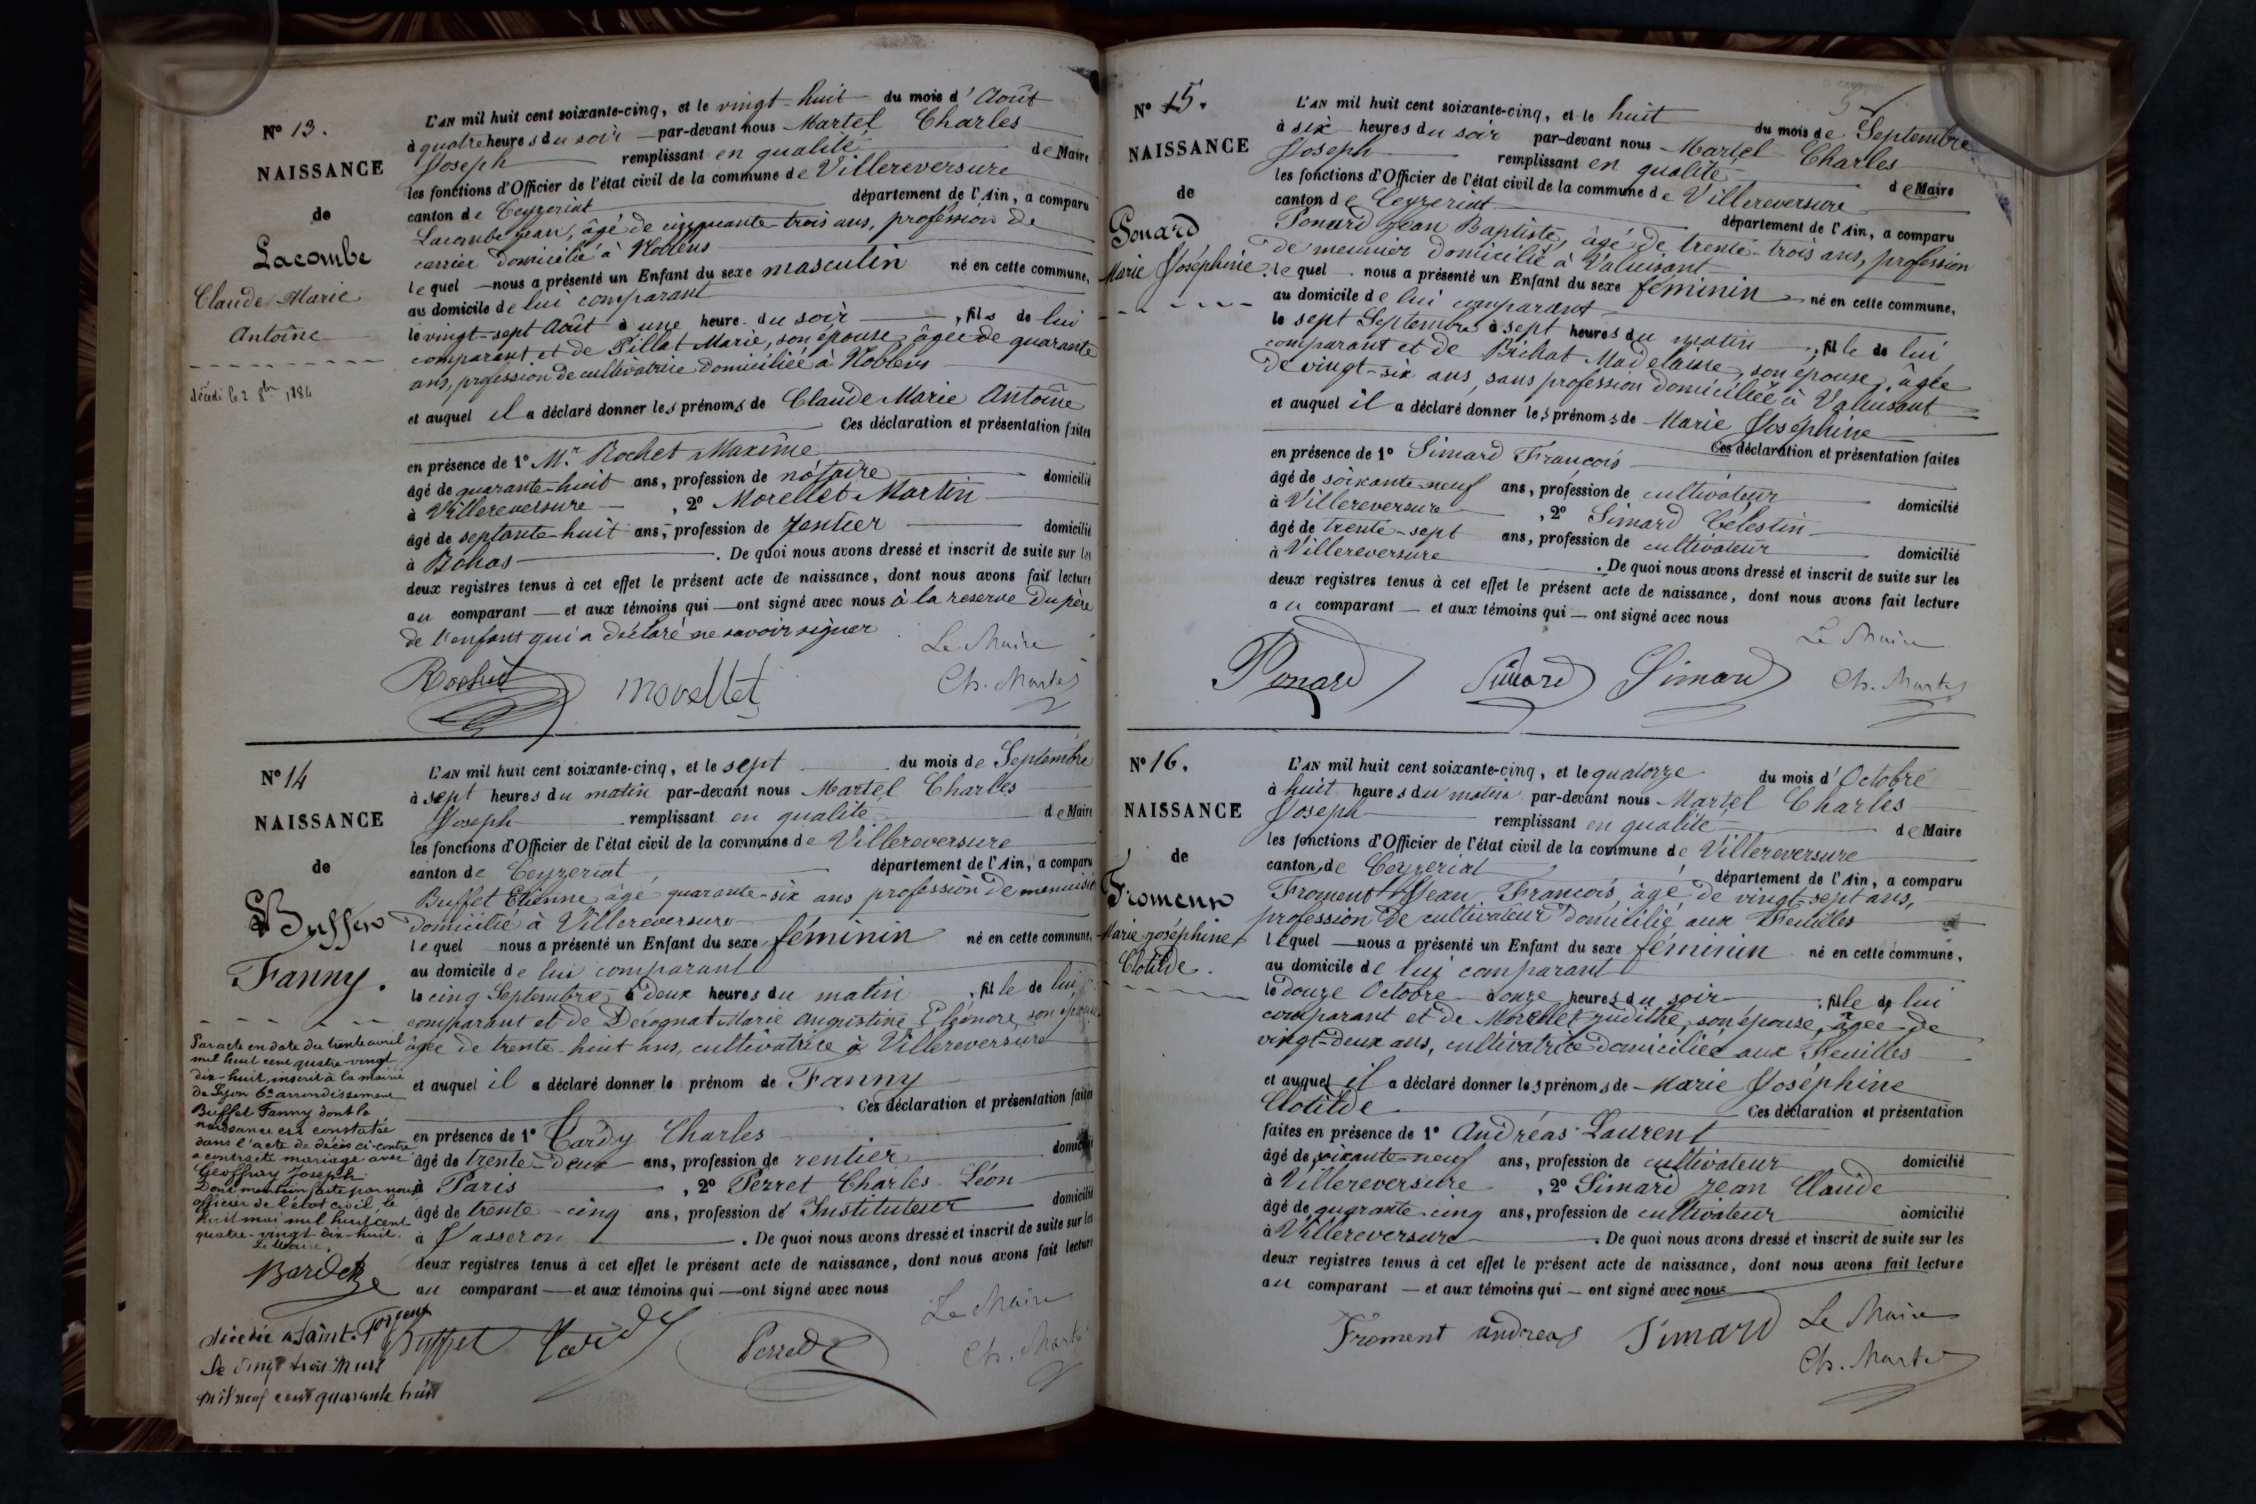 N° 13.
NAISSANCE
de
Lacombe
Claude Marie
Antoine
décédé le 2 8bre 1884
L'AN mil huit cent soixante-cinq, et le vingt-huit du mois d'Août
à quatre heures du soir par-devant nous Martel Charles
Joseph remplissant en qualité de Maire
les fonctions d'Officier de l'état civil de la commune de Villereversure
canton de Ceyzeriat département de l'Ain, a comparu
Lacombe Jean, âgé de cinquante-trois ans, profession de
carrier domicilié à Noblens
lequel nous a présenté un Enfant du sexe masculin né en cette commune,
au domicile de lui comparant
le vingt-sept Août à une heure du soir, fils de lui
comparant et de Pillat Marie, son épouse, âgée de quarante
ans, profession de cultivatrice domiciliée à Noblens
et auquel il a déclaré donner les prénoms de Claude Marie Antoine
Ces déclaration et présentation faites
en présence de 1° Mr Rochet Maxime
âgé de quarante-huit ans, profession de notaire domicilié
à Villereversure, 2° Morellet Martin
âgé de septante-huit ans, profession de rentier domicilié
à Bohas. De quoi nous avons dressé et inscrit de suite sur les
deux registres tenus à cet effet le présent acte de naissance, dont nous avons fait lecture
au comparant et aux témoins qui ont signé avec nous à la reserve du père
de l'enfant qui a déclaré ne savoir signer
Le Maire
Rochet Morellet Ch. Martel
N° 14
NAISSANCE
de
Buffet
Fanny.
Par acte en date du trente avril
mil huit cent quatre-vingt
dix-huit, inscrit à la mairie
de Lyon 6e arrondissement
Buffet Fanny dont la
naissance est constatée
dans l'acte de décès ci-contre
a contracté mariage avec
Geoffray Joseph.
Dont mention faite par nous
officier de l'état civil, le
huit mai mil huit cent
quatre-vingt dix-huit.
Le Maire,
décédée à Saint-
le vingt trois Mars
mil neuf cent quarante huit
L'AN mil huit cent soixante-cinq, et le sept du mois de Septembre
à sept heures du matin par-devant nous Martel Charles
Joseph remplissant en qualité de Maire
les fonctions d'Officier de l'état civil de la commune de Villereversure
canton de Ceyzeriat département de l'Ain, a comparu
Buffet Etienne âgé quarante-six ans profession de menuisier
domicilié à Villereversure
lequel nous a présenté un Enfant du sexe féminin né en cette commune,
au domicile de lui comparant
le cinq Septembre à deux heures du matin, fille de lui
comparant et de Derognat Marie Augustine Eléonore, son épouse
âgée de trente-huit ans, cultivatrice à Villereversure
et auquel il a déclaré donner le prénom de Fanny
Ces déclaration et présentation faites
en présence de 1° Tardy Charles
âgé de trente-deux ans, profession de rentier domicilié
à Paris, 2° Perret Charles Léon
âgé de trente-cinq ans, profession de Instituteur domicilié
à Jasseron. De quoi nous avons dressé et inscrit de suite sur les
deux registres tenus à cet effet le présent acte de naissance, dont nous avons fait lecture
au comparant et aux témoins qui ont signé avec nous
Le Maire
Buffet Tardy Perret Ch. Martel
N° 15.
NAISSANCE
de
Ponard
Marie Joséphine.
L'AN mil huit cent soixante-cinq, et le huit du mois de Septembre
à six heures du soir par-devant nous Martel Charles
Joseph remplissant en qualité de Maire
les fonctions d'Officier de l'état civil de la commune de Villereversure
canton de Ceyzeriat département de l'Ain, a comparu
Ponard Jean Baptiste, âgé de trente-trois ans, profession
de meunier domicilié à Valuisant
lequel nous a présenté un Enfant du sexe féminin né en cette commune,
au domicile de lui comparant
le sept Septembre à sept heures du matin, fille de lui
comparant et de Bichat Madelaine, son épouse, âgée
de vingt-six ans, sans profession domiciliée à Valuisant
et auquel il a déclaré donner les prénoms de Marie Joséphine
Ces déclaration et présentation faites
en présence de 1° Simard François
âgé de soixante-neuf ans, profession de cultivateur domicilié
à Villereversure, 2° Simard Célestin
âgé de trente-sept ans, profession de cultivateur domicilié
à Villereversure. De quoi nous avons dressé et inscrit de suite sur les
deux registres tenus à cet effet le présent acte de naissance, dont nous avons fait lecture
au comparant et aux témoins qui ont signé avec nous
Le Maire
Ponard Simard Simard Ch. Martel
N° 16.
NAISSANCE
de
Froment
Marie Joséphine
Clotilde.
L'AN mil huit cent soixante-cinq, et le quatorze du mois d'Octobre
à huit heures du matin par-devant nous Martel Charles
Joseph remplissant en qualité de Maire
les fonctions d'Officier de l'état civil de la commune de Villereversure
canton de Ceyzeriat département de l'Ain, a comparu
Froment Jean François âgé de vingt-sept ans,
profession de cultivateur domicilié aux Feuilles
lequel nous a présenté un Enfant du sexe féminin né en cette commune,
au domicile de lui comparant
le douze Octobre à onze heures du soir, fille de lui
comparant et de Morellet Judithe, son épouse, âgée de
vingt-deux ans, cultivatrice domiciliée aux Feuilles
et auquel il a déclaré donner les prénoms de Marie Joséphine
Clotilde Ces déclaration et présentation
faites en présence de 1° Andréas Laurent
âgé de soixante-neuf ans, profession de cultivateur domicilié
à Villereversure, 2° Simard Jean Claude
âgé de quarante-cinq ans, profession de cultivateur domicilié
à Villereversure. De quoi nous avons dressé et inscrit de suite sur les
deux registres tenus à cet effet le présent acte de naissance, dont nous avons fait lecture
au comparant et aux témoins qui ont signé avec nous
Froment andreas Simard Le Maire
Ch. Martel